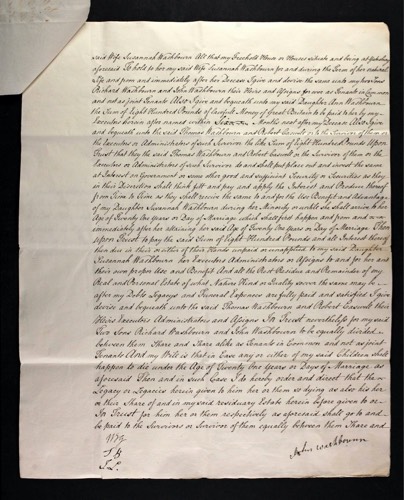 said Wife Susannah Washbourn All that my Freehold House or Houses situate and being at
aforesaid To hold to her my said Wife Susannah Washbourn for and during the Term of her natural
Life and from and immediately after her Decease I give and devise the same unto my two Sons
Richard Washbourn and John Washbourn their Heirs and Assigns for ever as Tenants in Common
and not as joint Tenants Also I give and bequeath unto my said Daughter Ann Washbourn
the Sum of Eight Hundred Pounds of lawfull Money of Great Britain to be paid to her by my
Executors herein after named within Months next after my Decease Also I give
and bequeath unto the said Thomas Washbourn and Robert or the Survivor of them or
the Executors or Administrators of such Survivor the like Sum of Eight Hundred Pounds Upon
Trust that they the said Thomas Washbourn and Robert or the Survivor of them or the
Executors or Administrators of such Survivor do and shall put place out and invest the same
at Interest on Government or some other good and sufficient Security or Securities as they
in their Discretion shall think fitt and pay and apply the Interest and Produce thereof
from Time to Time as they shall receive the same to and for the Use Benefit and Advantage
of my Daughter Susannah Washbourn during her Minority or untill she shall arrive to the
Age of Twenty One Years or Day of Marriage which shall first happen and from and
immediately after her attaining her said Age of Twenty One Years or Day of Marriage Then
Upon Trust to pay the said Sum of Eight Hundred Pounds and all Interest thereof
then due in their or either of their Hands unpaid or unapplied to my said Daughter
Susannah Washbourn her Executors Administrators or Assigns to and for her and
their own proper Use and Benefit And all the Rest Residue and Remainder of my
Real and Personal Estate of what Nature Kind or Quality soever the same may be
after my Debts Legacys and Funeral Expences are fully paid and satisfied I give
devise and bequeath unto the said Thomas Washbourn and Robert their
Heirs Executors Administrators and Assigns In Trust nevertheless for my said
Two Sons Richard Washbourn and John Washbourn to be equally divided
between them Share and Share alike as Tenants in Common and not as joint
Tenants And my Will is that in Case any or either of my said Children shall
happen to die under the Age of Twenty One Years or Days of Marriage as
aforesaid Then and in such Case I do hereby order and direct that the
Legacy or Legacies herein given to him her or them so dying as also his her
or their Share of and in my said residuary Estate herein before given to or
In Trust for him her or them respectively as aforesaid shall go to and
be paid to the Survivors or Survivor of them equally between them Share and
John Washbourn